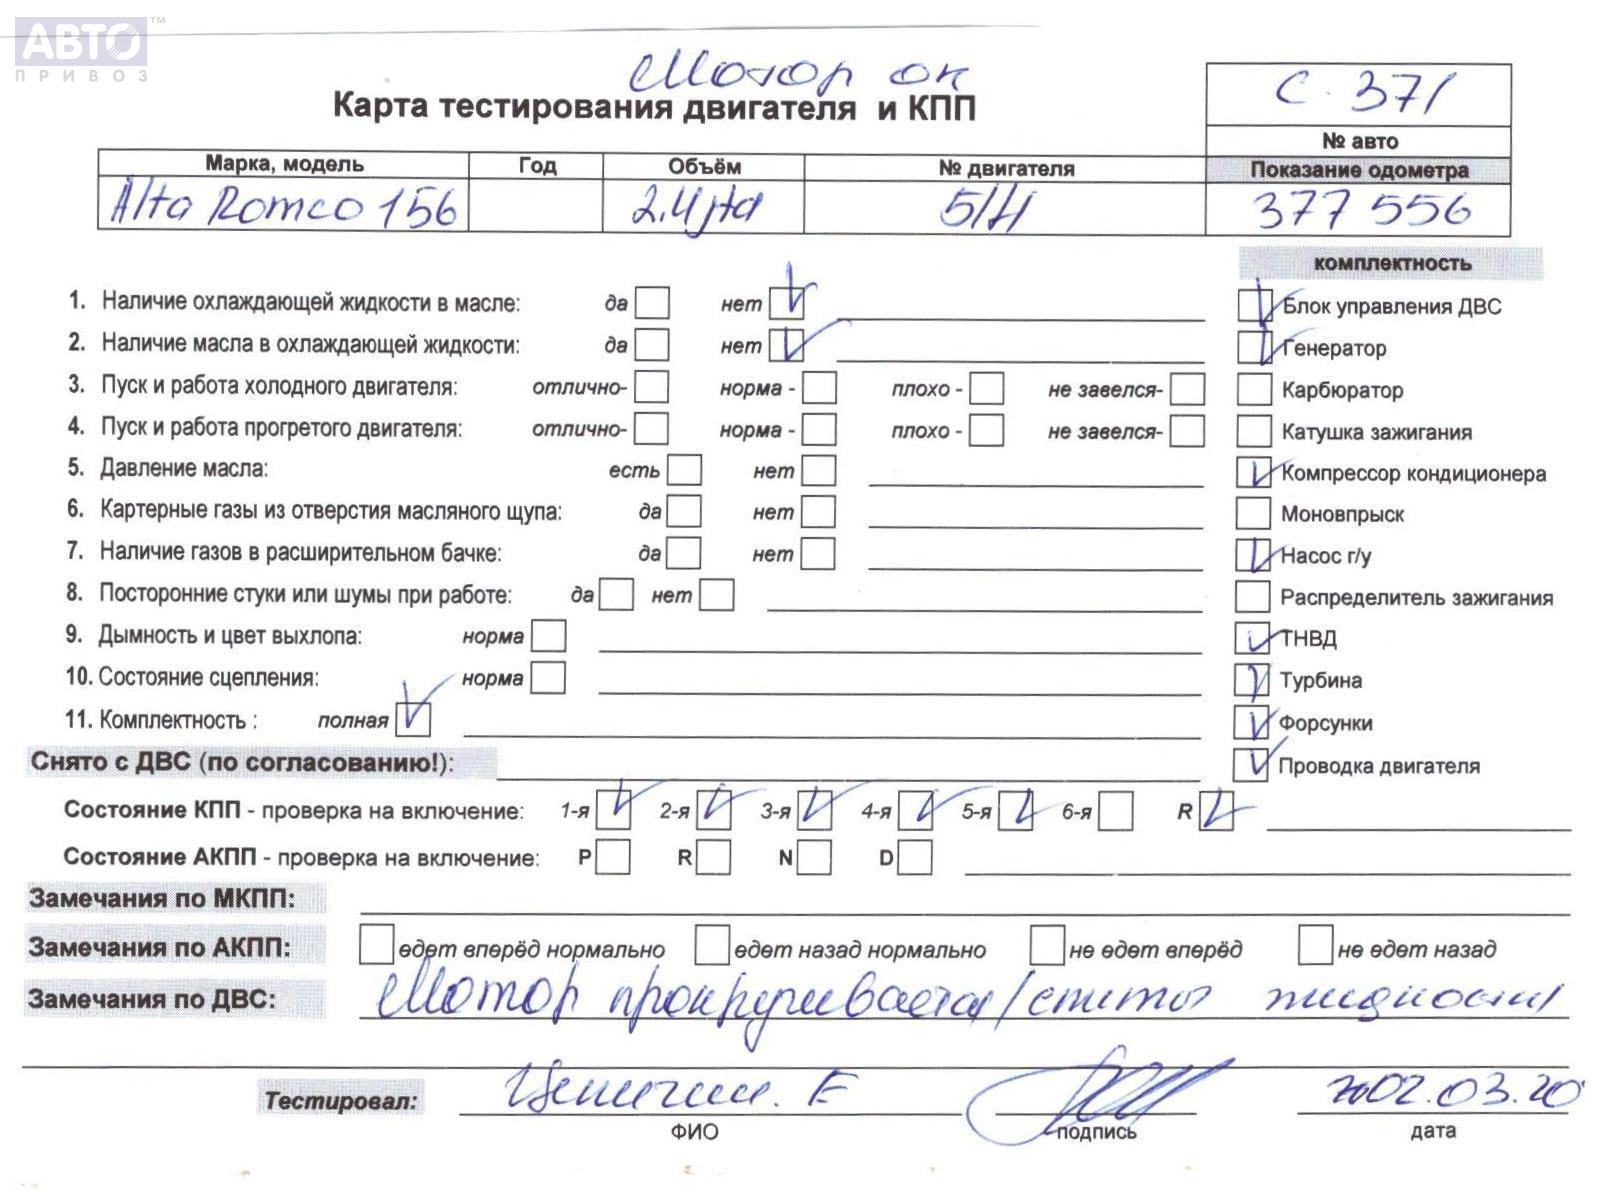 АВТО™
ПРИВОЗ
Мотор ок
Карта тестирования двигателя и КПП
С 371
№ авто
Марка, модель Год Объём № двигателя Показание одометра
Alfa Romeo 156 2.4 jtd Б/Н 377 556
комплектность
1. Наличие охлаждающей жидкости в масле: да нет
Блок управления ДВС
2. Наличие масла в охлаждающей жидкости: да нет
Генератор
3. Пуск и работа холодного двигателя: отлично- норма - плохо - не завелся-
Карбюратор
4. Пуск и работа прогретого двигателя: отлично- норма - плохо - не завелся-
Катушка зажигания
5. Давление масла: есть нет
Компрессор кондиционера
6. Картерные газы из отверстия масляного щупа: да нет
Моновпрыск
7. Наличие газов в расширительном бачке: да нет
Насос г/у
8. Посторонние стуки или шумы при работе: да нет
Распределитель зажигания
9. Дымность и цвет выхлопа: норма
ТНВД
10. Состояние сцепления: норма
Турбина
11. Комплектность : полная
Форсунки
Снято с ДВС (по согласованию!):
Проводка двигателя
Состояние КПП - проверка на включение: 1-я 2-я 3-я 4-я 5-я 6-я R
Состояние АКПП - проверка на включение: P R N D
Замечания по МКПП:
Замечания по АКПП: едет вперёд нормально едет назад нормально не едет вперёд не едет назад
Замечания по ДВС: Мотор прокручивается/слиты жидкости
Тестировал: 02.03.20
ФИО подпись дата